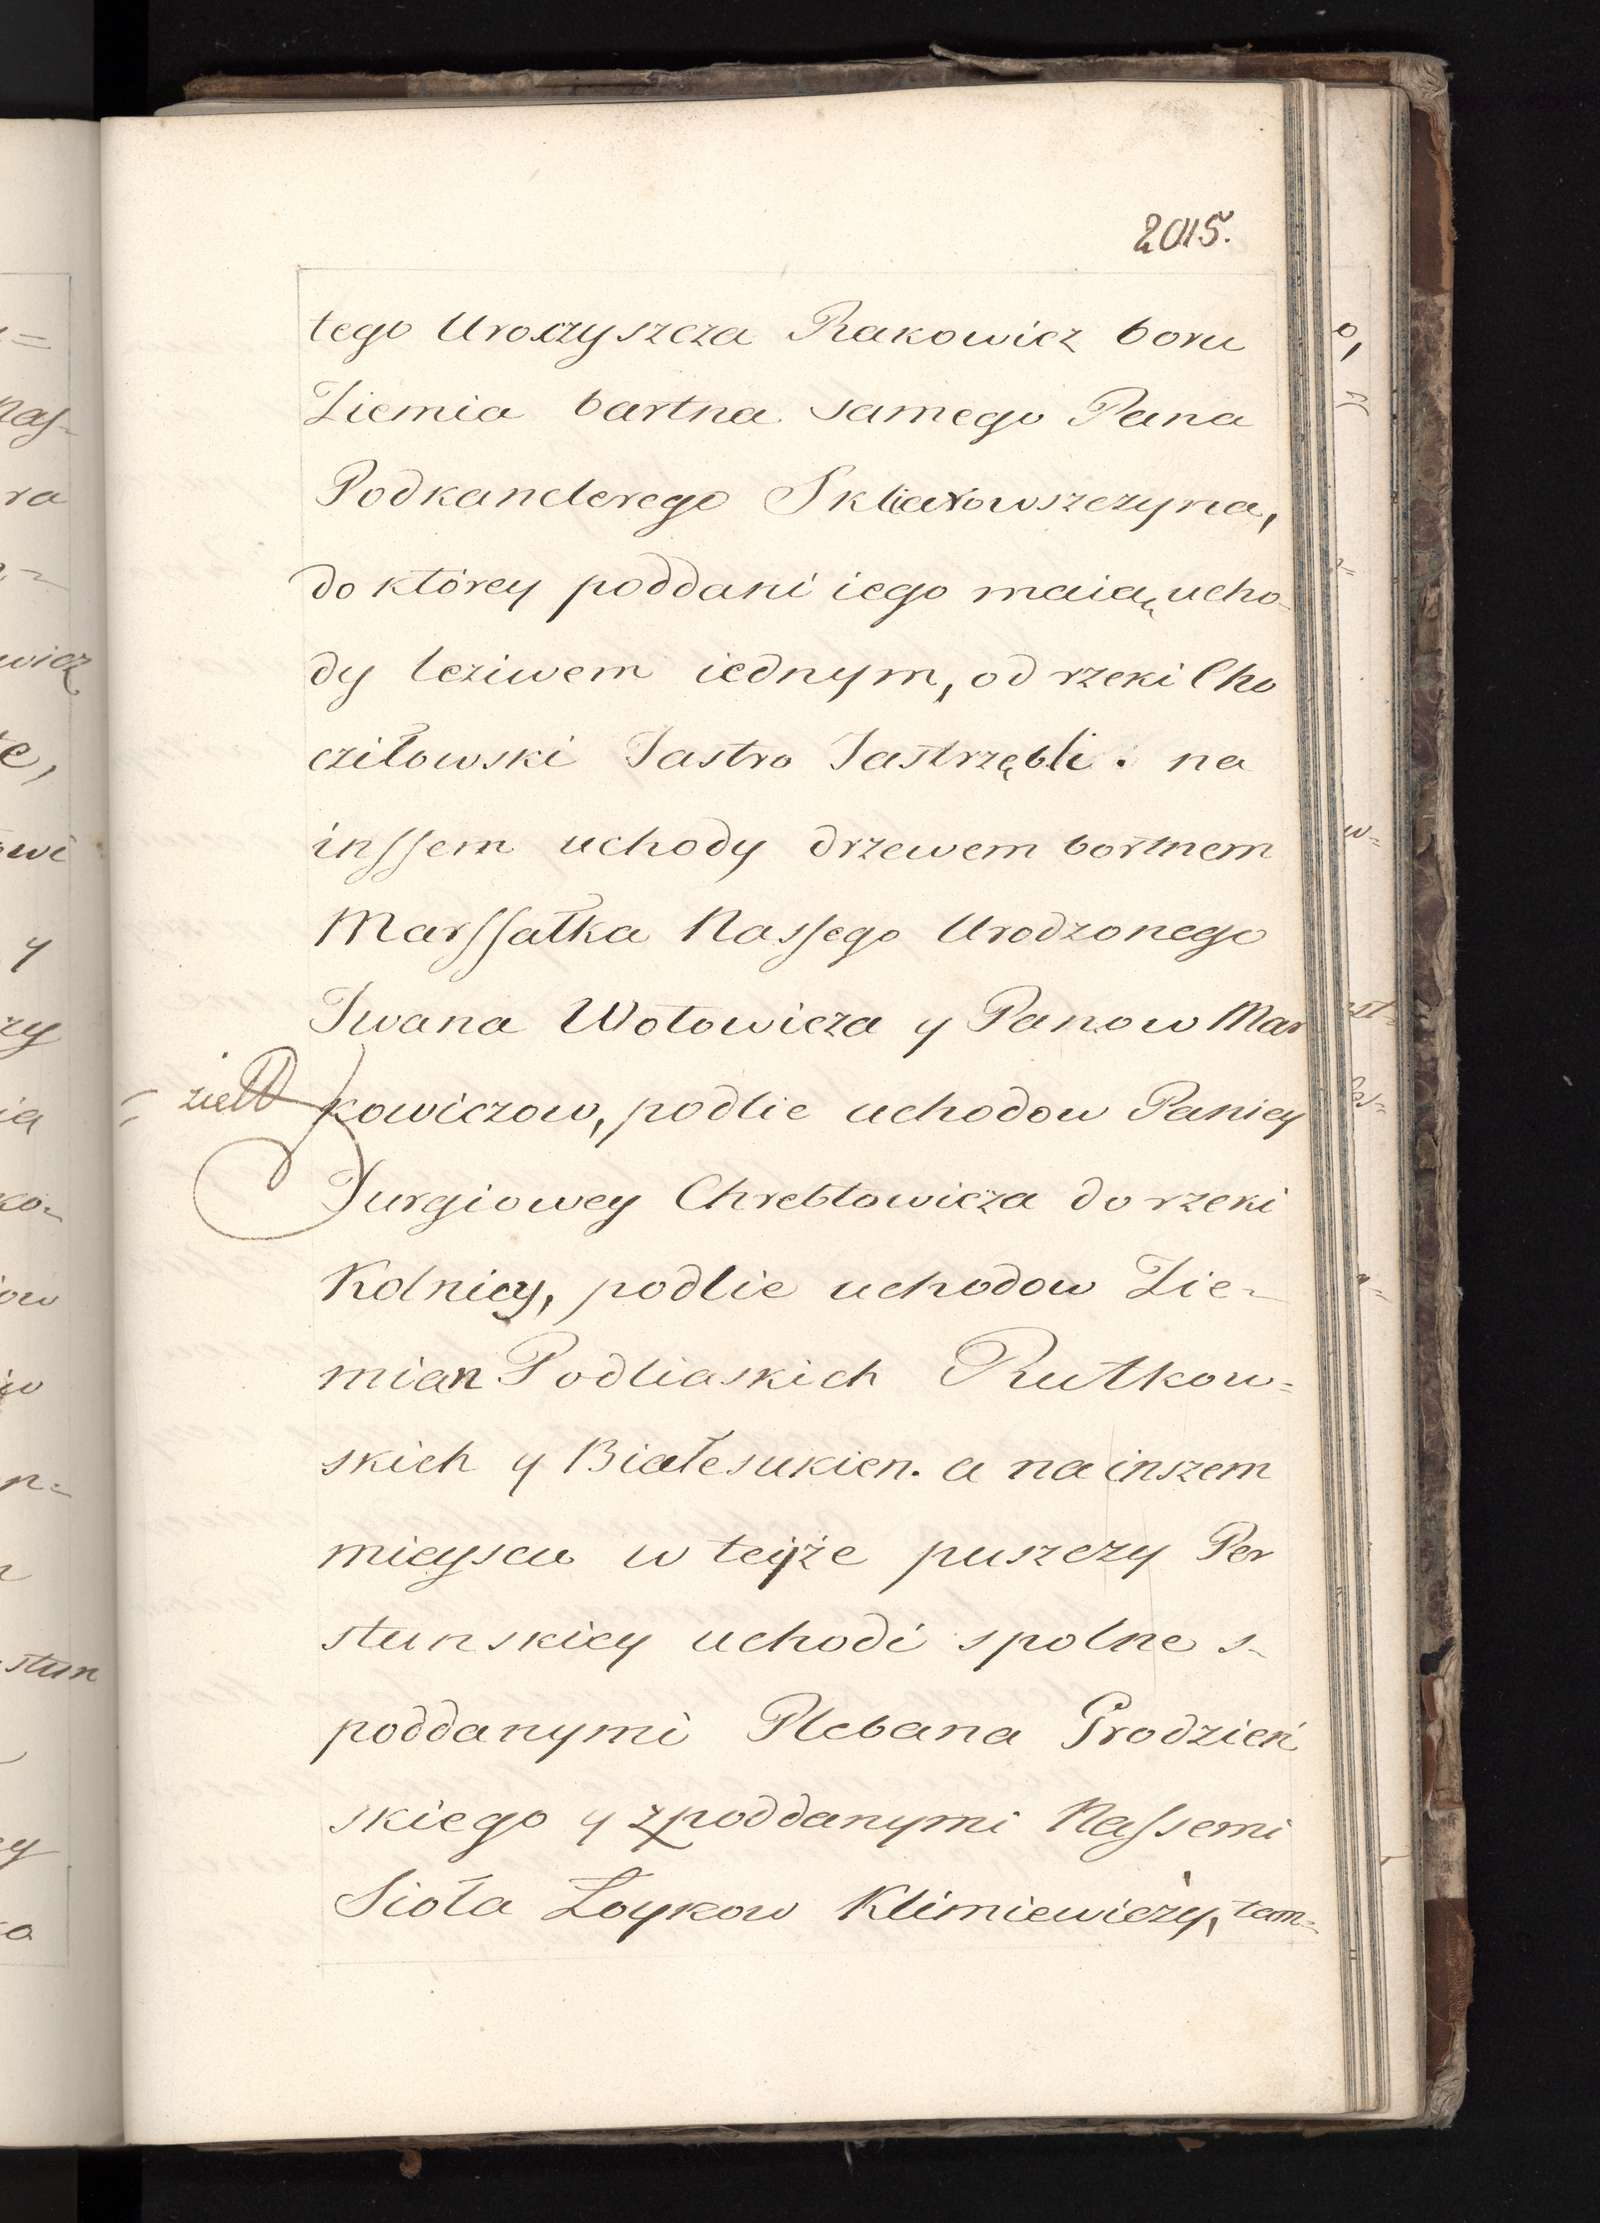 2015.
tego Uroczyszcza Rakowicz boru
Ziemia bartna samego Pana
Podkanclerego Skliarowszczyna,
do ktorey poddani iego maią ucho-
dy leziwem iednym, od rzeki Cho
cziłowski Jastro Jastrzębli. na
inssem uchody drzewem bortnem
Marssałka Nassego Urodzonego
Iwana Wołowicza y Panow Mar
kowiczow, podlie uchodow Paniey
Jurgiowey Chrebtowicza do rzeki
Kolnicy, podlie uchodow Zie-
mian Podliaskich Rutkow=
skich y Białesukien. a na inszem
mieyscu w teyże puszczy Per
stunskiey uchodi spolne s-
poddanymi Plebana Grodzień
skiego y z poddanymi Nassemi
Sioła Łoykow Klimiewiczy, tam=